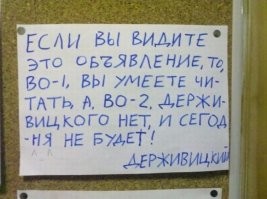 ЕСЛИ ВЫ ВИДИТЕ
ЭТО ОБЪЯВЛЕНИЕ, ТО,
ВО-1, ВЫ УМЕЕТЕ ЧИ-
ТАТЬ, А, ВО-2, ДЕРЖИ-
ВИЦКОГО НЕТ, И СЕГОД-
-НЯ НЕ БУДЕТ!
ДЕРЖИВИЦКИЙ